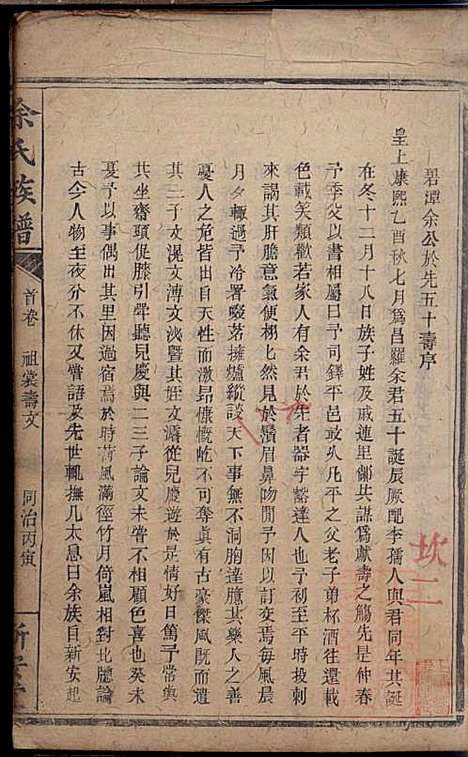 碧潭余公於先五十壽序
皇上康熙乙酉秋七月爲昌羅余君五十誕辰厥配李孺人與君同年其誕
在冬十二月十八日族子姓及戚連里鄰共謀爲獻壽之觴先是仲春
予季父以書相屬曰予司鐸平邑最久凡平之父老子弟杯酒往還載
色載笑類歡若家人有余君於先者器宇豁達人也予初至平時投刺
來謁其肝膽意氣便栩栩然見於鬚眉鼻吻間予因以訂交焉每風晨
月夕輒過予冷署啜茗擁爐縱談天下事無不洞胸達臆其樂人之善
憂人之危皆出天性而激昂慷慨屹不可奪眞有古豪傑風旣而遣
其二子文混文溥文浹曁其姪文灂從兒慶遊於是情好日篤予嘗與
共坐齋頭促膝引聲聽兒慶與二三子論文未嘗不相顧色喜也癸未
夏予以事偶出其里因過宿焉於時荷風滿徑竹月倚嵐相對北牕論
古今人物至夜分不休又嘗語及先世輒撫几太息曰余族自新安起
余氏族譜
首卷
祖裳壽文
同治丙寅
新安堂
坎二